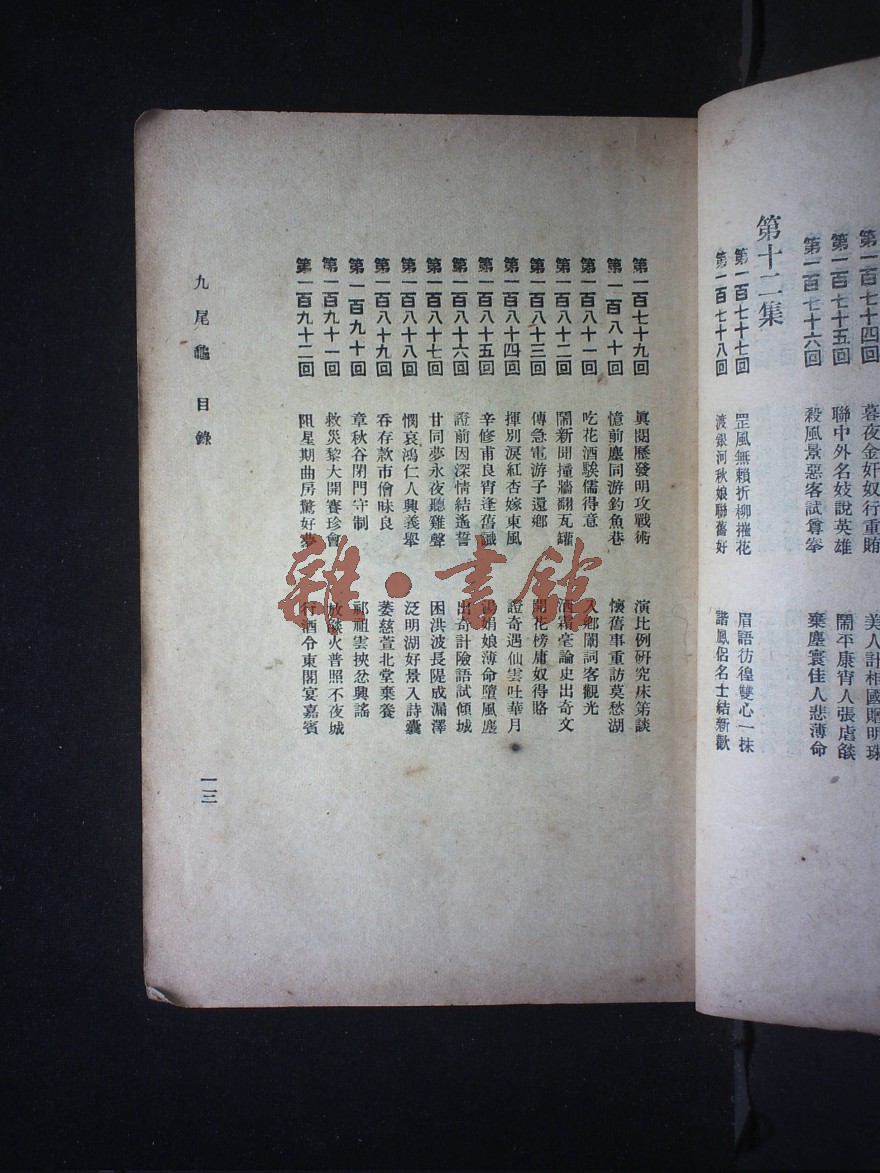 第一百七十四回 暮夜金奸奴行重賄 美人計相國贈明珠
第一百七十五回 聯中外名妓說英雄 鬧平康宵人張虐燄
第一百七十六回 殺風景惡客試尊拳 棄塵寰佳人悲薄命
第十二集
第一百七十七回 罡風無賴折柳摧花 眉語彷徨雙心一抹
第一百七十八回 渡銀河秋娘聯舊好 諧鳳侶名士結新歡
第一百七十九回 眞閱歷發明攻戰術 演比例硏究床笫談
第一百八十回 憶前塵同游釣魚巷 懷舊事重訪莫愁湖
第一百八十一回 吃花酒騃儒得意 入鄉闈詞客觀光
第一百八十二回 鬧新聞撞牆翻瓦罐 洒霜毫論史出奇文
第一百八十三回 傳急電游子還鄉 開花榜庸奴得賂
第一百八十四回 揮別淚紅杏嫁東風 證奇遇仙雲吐華月
第一百八十五回 辛修甫良宵逢舊識 湯娟娘薄命墮風塵
第一百八十六回 證前因深情結遙誓 出奇計險語試傾城
第一百八十七回 甘同夢永夜聽雞聲 困洪波長隄成漏澤
第一百八十八回 憫哀鴻仁人興義舉 泛明湖好景入詩囊
第一百八十九回 吞存款市儈昧良 萎慈萱北堂棄養
第一百九十回 章秋谷閉門守制 祁祖雲挾忿興謠
第一百九十一回 救災黎大開賽珍會 放燄火普照不夜城
第一百九十二回 阻星期曲房驚好夢 行酒令東閣宴嘉賓
九尾龜 目錄
一三
雜·書館